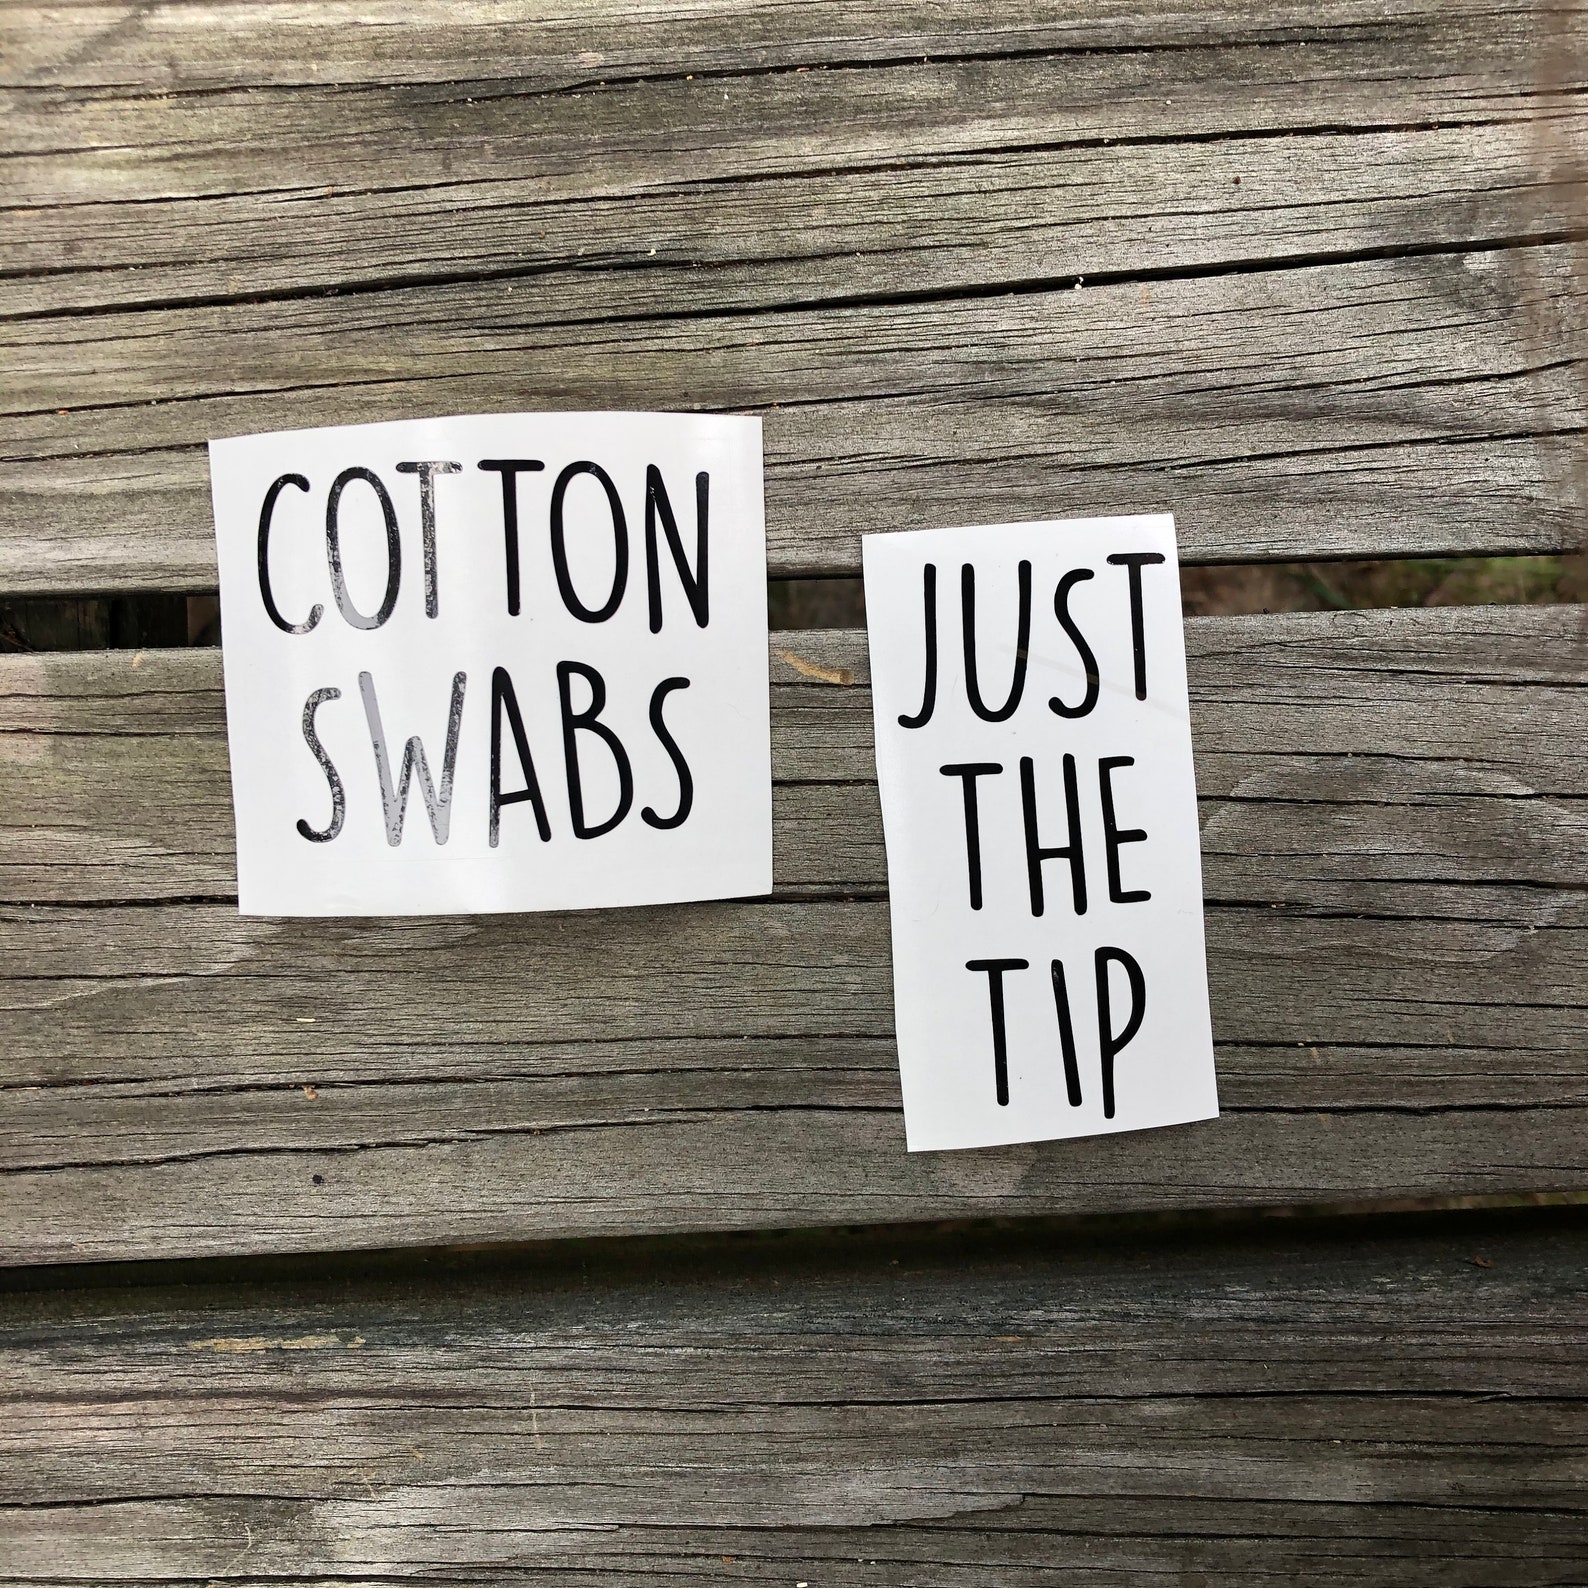 COTTON
SWABS
JUST
THE
TIP